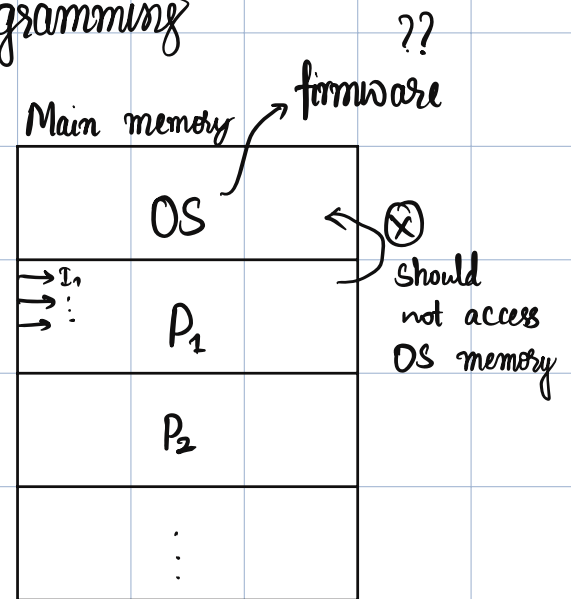 gramming
??
firmware
Main memory
OS
X
I₁
⋮
should
not access
OS memory
P₁
P₂
⋮